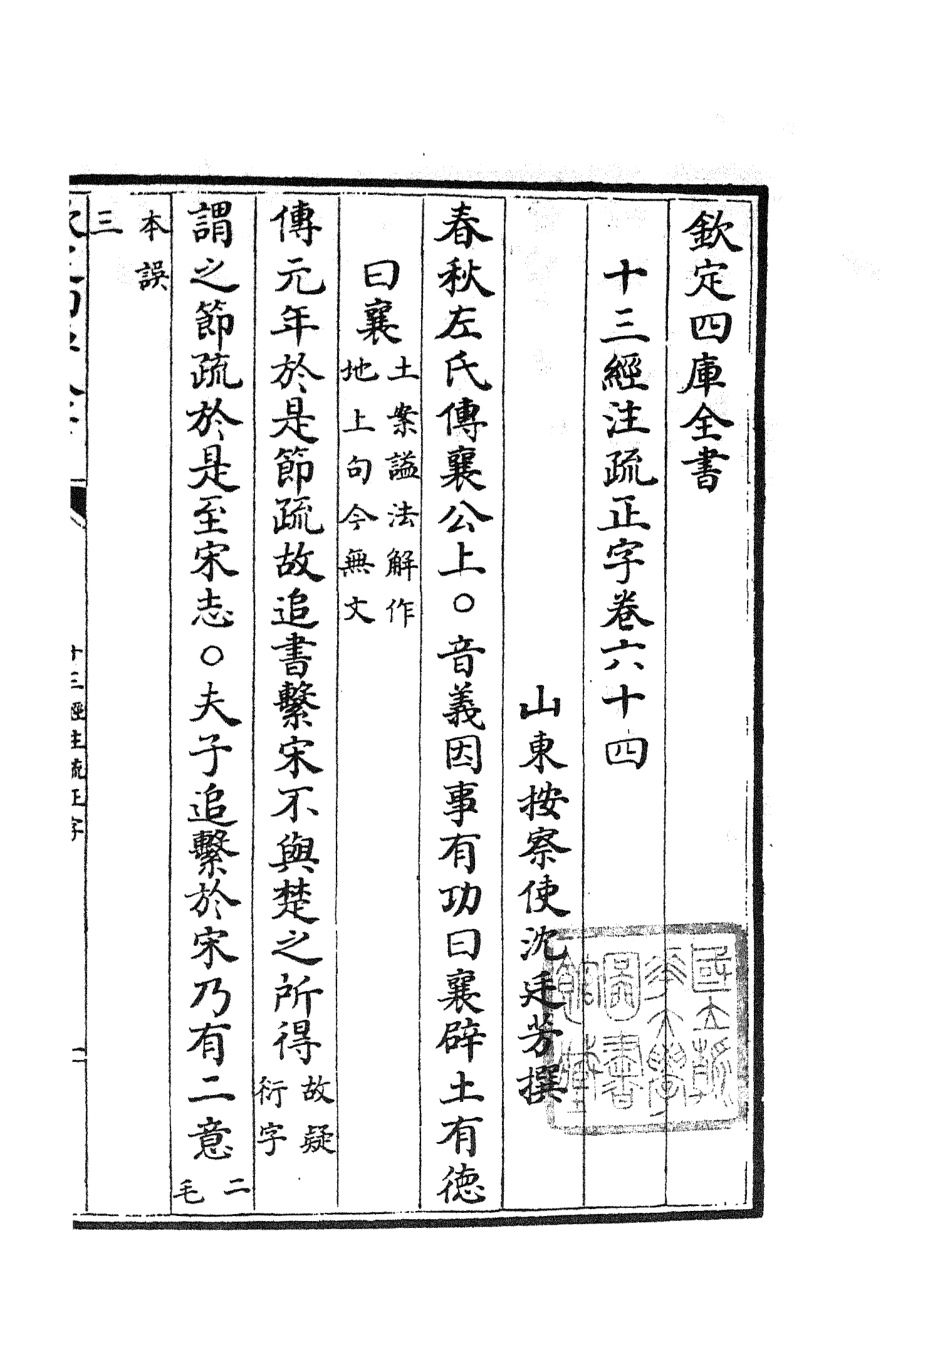 欽定四庫全書
十三經注疏正字卷六十四
山東按察使沈廷芳撰
春秋左氏傳襄公上○音義因事有功曰襄辟土有德
曰襄
土案謚法解作
地上句今無文
傳元年於是節疏故追書繫宋不與楚之所得
故疑
衍字
謂之節疏於是至宋志○夫子追繫於宋乃有二意
二
毛
本誤
三
欽定四庫全書
十三經注疏正字
國立
華大學
圖書